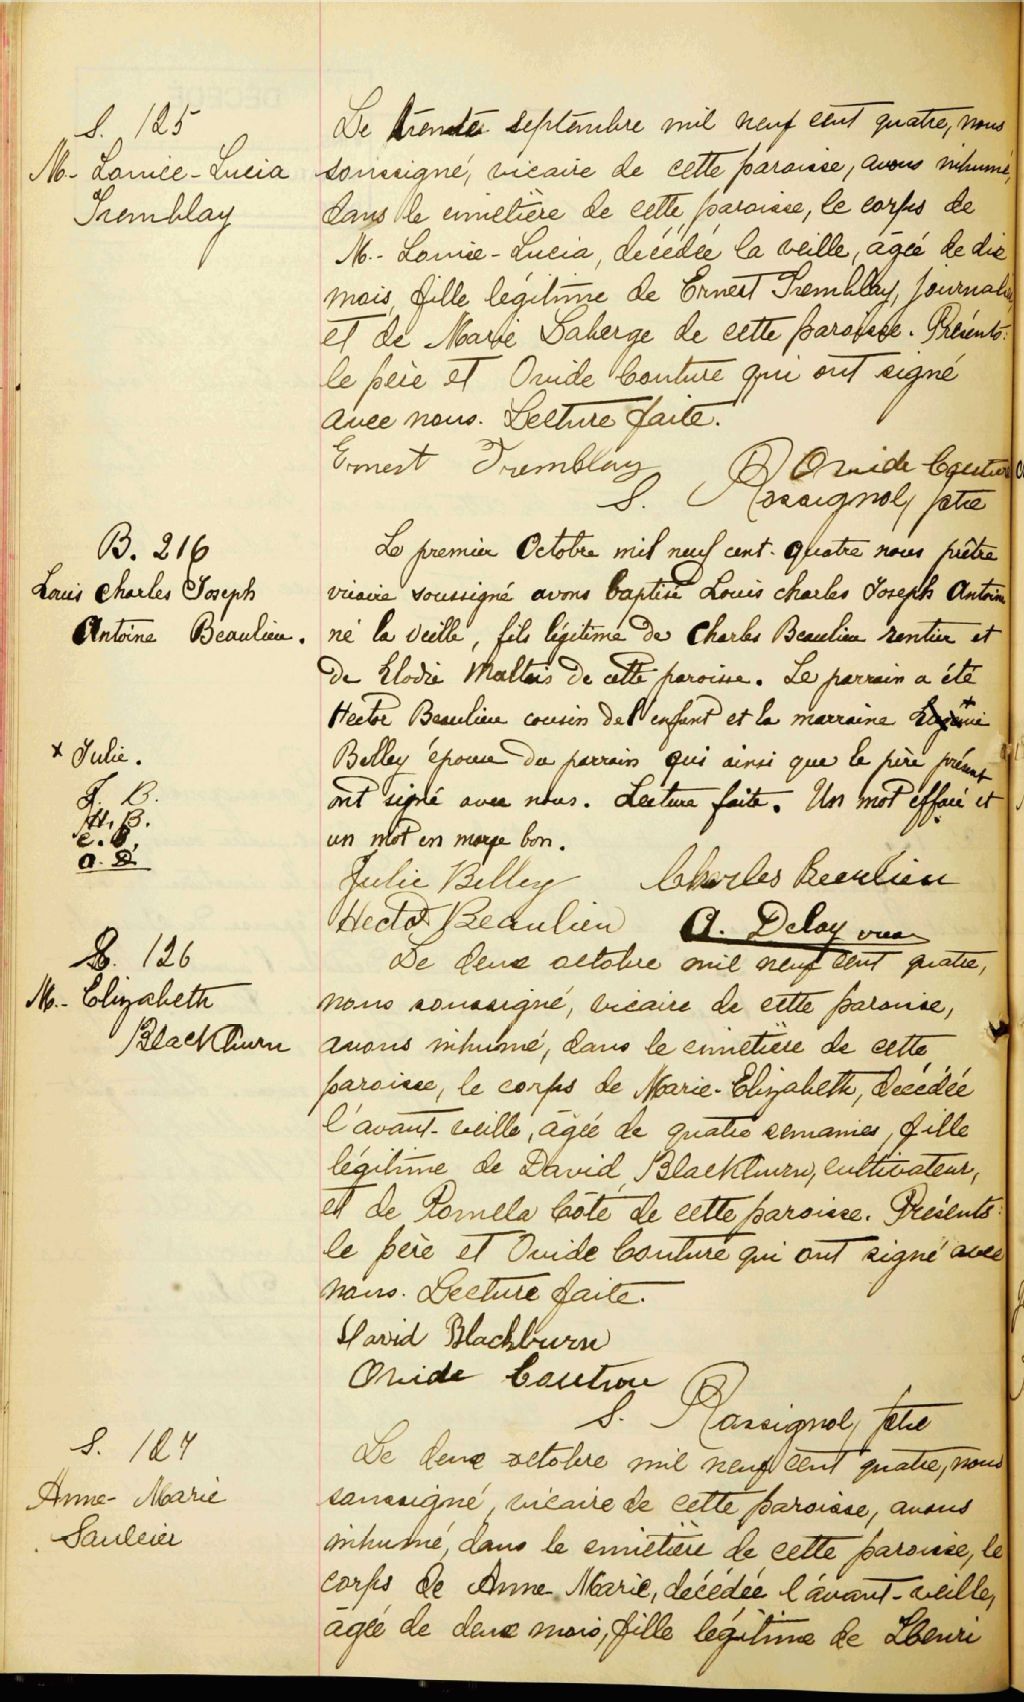 S. 125
M.- Louise-Lucia
Tremblay
Le trente septembre mil neuf cent quatre, nous
soussigné, vicaire de cette paroisse, avons inhumé,
dans le cimetière de cette paroisse, le corps de
M.- Louise-Lucia, décédée la veille, âgée de dix
mois, fille légitime de Ernest Tremblay, journalier,
et de Marie Laberge de cette paroisse. Présents:
le père et Ovide Couture qui ont signé
avec nous. Lecture faite.
Ernest Tremblay Ovide Couture
S. Rossignol, ptre
B. 216
Louis Charles Joseph
Antoine Beaulieu.
Le premier Octobre mil neuf cent-quatre nous prêtre
vicaire soussigné avons baptisé Louis Charles Joseph Antoine
né la veille, fils légitime de Charles Beaulieu rentier et
de Elodie Maltais de cette paroisse. Le parrain a été
Hector Beaulieu cousin de l'enfant et la marraine Eugénie +
Belley épouse du parrain qui ainsi que le père présent
ont signé avec nous. Lecture faite. Un mot effacé et
un mot en marge bon.
+ Julie.
J. B.
H. B.
C. B.
A. D.
Julie Belley Charles Beaulieu
Hector Beaulieu A. Delay vicaire
S. 126
M.- Elizabeth
Blackburn
Le deux octobre mil neuf cent quatre,
nous soussigné, vicaire de cette paroisse,
avons inhumé, dans le cimetière de cette
paroisse, le corps de Marie-Elizabeth, décédée
l'avant-veille, âgée de quatre semaines, fille
légitime de David Blackburn, cultivateur,
et de Pomela Côté de cette paroisse. Présents:
le père et Ovide Couture qui ont signé avec
nous. Lecture faite.
David Blackburn
Ovide Couture
S. Rossignol, ptre
S. 127
Anne-Marie
Saulcier
Le deux octobre mil neuf cent quatre, nous
soussigné, vicaire de cette paroisse, avons
inhumé, dans le cimetière de cette paroisse, le
corps de Anne Marie, décédée l'avant-veille,
âgée de deux mois, fille légitime de Henri